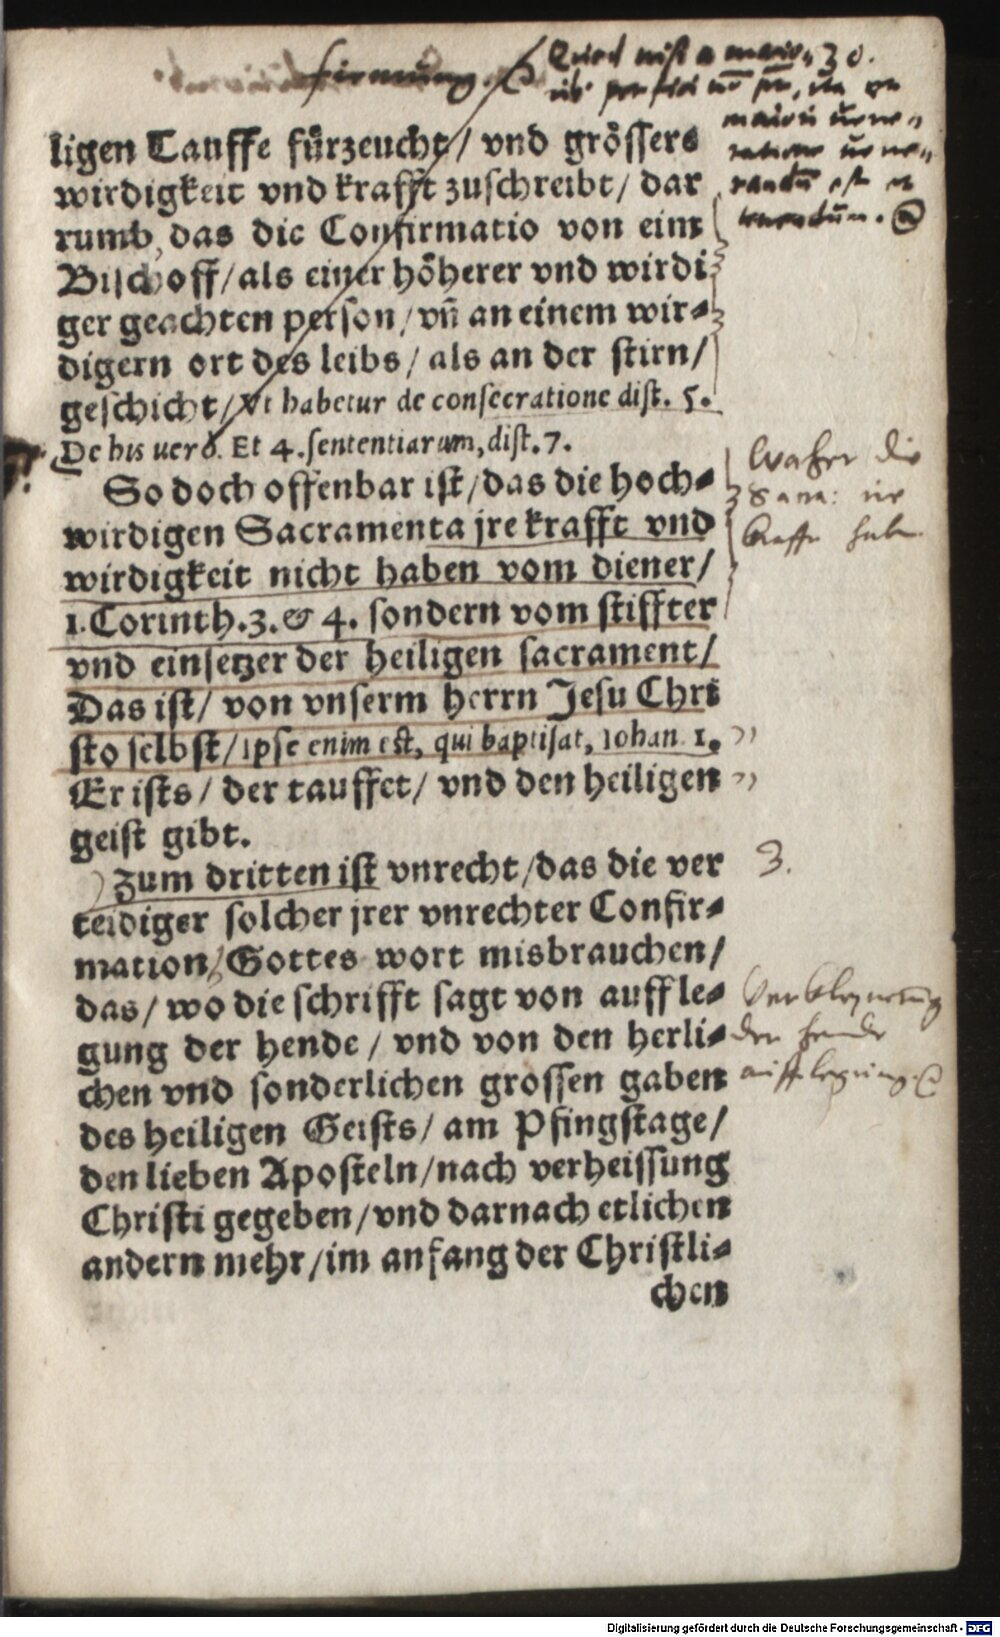 firmung.
Quod nisi a maiori= 30.
maiori uene=
ratione uene=
randū est et
tenendum.
ligen Tauffe fürzeucht/ vnd grössers
wirdigkeit vnd krafft zuschreibt/ dar
rumb, das die Confirmatio von eim
Bischoff/als einer höherer vnd wirdi
ger geachten person/vn̄ an einem wir⸗
digern ort des leibs/ als an der stirn/
geschicht/Vt habetur de consecratione dist. 5.
De his uero. Et 4.sententiarum,dist.7.
So doch offenbar ist/das die hoch⸗
wirdigen Sacramenta jre krafft vnd
wirdigkeit nicht haben vom diener/
1.Corinth.3.& 4. sondern vom stiffter
vnd einsetzer der heiligen sacrament/
Das ist/ von vnserm Herrn Jesu Chri
sto selbst/ipse enim est, qui baptisat, Iohan. 1.
Er ists/ der tauffet/ vnd den heiligen
geist gibt.
Woher die
Sacra: ire
krafft haben
Zum dritten ist vnrecht/das die ver
teidiger solcher jrer vnrechter Confir⸗
mation/Gottes wort misbrauchen/
das/ wo die schrifft sagt von auffle⸗
gung der hende/ vnd von den herli⸗
chen vnd sonderlichen grossen gaben
des heiligen Geists/ am Pfingstage/
den lieben Aposteln/nach verheissung
Christi gegeben/vnd darnach etlichen
andern mehr/im anfang der Christli⸗
chen
3.
Verkleynerūg
der hende
aufflegung.
Digitalisierung gefördert durch die Deutsche Forschungsgemeinschaft - DFG